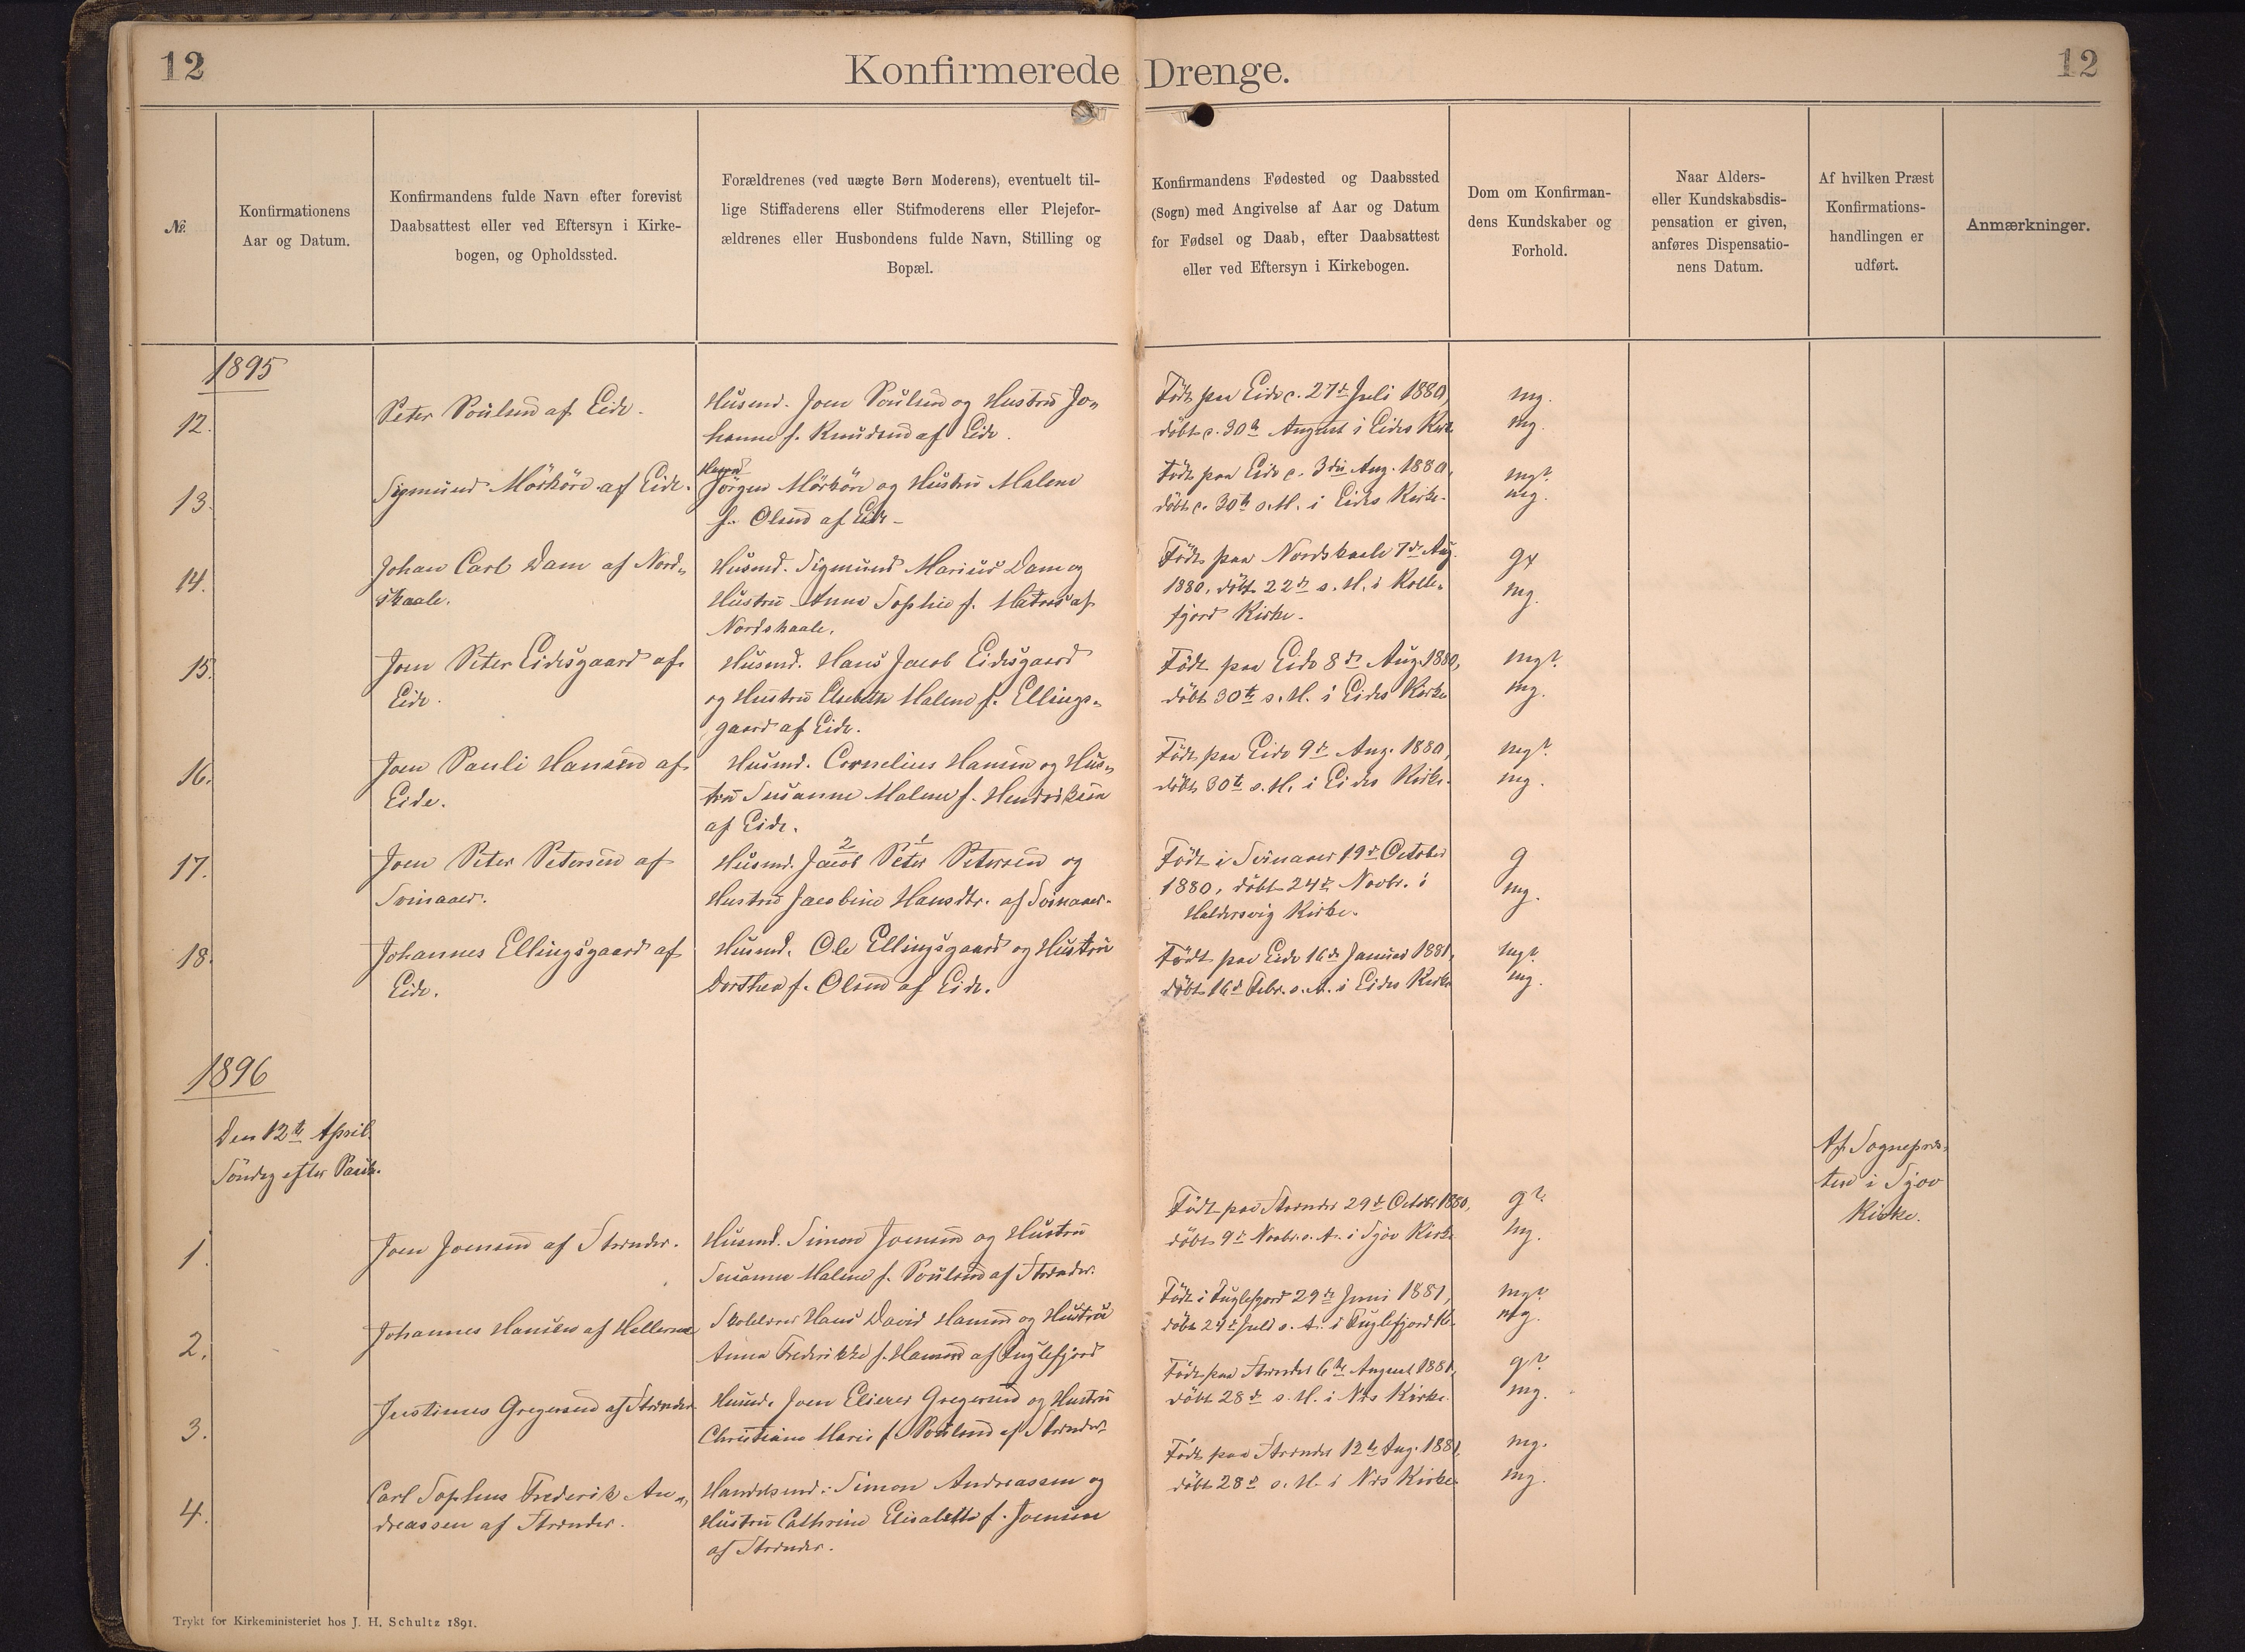 12
Konfirmerede Drenge.
12
№.
Konfirmationens
Aar og Datum.
Konfirmandens fulde Navn efter forevist
Daabsattest eller ved Eftersyn i Kirke-
bogen, og Opholdssted.
Forældrenes (ved uægte Børn Moderens), eventuelt til-
lige Stiffaderens eller Stifmoderens eller Plejefor-
ældrenes eller Husbondens fulde Navn, Stilling og
Bopæl.
Konfirmandens Fødested og Daabssted
(Sogn) med Angivelse af Aar og Datum
for Fødsel og Daab, efter Daabsattest
eller ved Eftersyn i Kirkebogen.
Dom om Konfirman-
dens Kundskaber og
Forhold.
Naar Alders-
eller Kundskabsdis-
pensation er given,
anføres Dispensatio-
nens Datum.
Af hvilken Præst
Konfirmations-
handlingen er
udført.
Anmærkninger.
1895
12.
Peter Poulsen af Eide.
Husmd. Joen Poulsen og Hustru Jo-
hanne f. Knudsen af Eide.
Födt paa Eide c. 27de Juli 1880,
döbt c. 30te August i Eides Kirke
mg.
mg.
13.
Sigmund Mörköre af Eide.
Husmd
Jörgen Mörköre og Hustru Malene
f. Olsen af Eide
Födt paa Eide c. 3die Aug. 1880,
döbt c. 30te s. M. i Eides Kirke.
mg?
mg.
14.
Johan Carl Dam af Nord-
skaale.
Husmd. Sigmund Marius Dam og
Hustru Anne Sophie f. Matras af
Nordskaale.
Födt paa Nordskaale 7de Aug.
1880, döbt 22de s. M. i Kolle-
fjord Kirke.
g
mg.
15.
Joen Peter Eidesgaard af
Eide.
Husmd. Hans Jacob Eidesgaard
og Hustru Elsebeth Malene f. Ellings-
gaard af Eide.
Födt paa Eide 8de Aug. 1880,
döbt 30te s. M. i Eides Kirke
mg?
mg.
16.
Joen Pauli Hansen af
Eide.
Husmd. Cornelius Hansen og Hus-
tru Susanne Malene f. Hendriksen
af Eide.
Födt paa Eide 9de Aug. 1880,
döbt 30te s. M. i Eides Kirke.
mg?
mg.
17.
Joen Peter Petersen af
Svinaaer.
2 1
Husmd. Jacob Peter Petersen og
Hustru Jacobine Hansdtr. af Svinaaer.
Födt i Svinaaer 19de October
1880, döbt 24de Novbr. i
Haldersvig Kirke.
g
mg.
18.
Johannes Ellingsgaard af
Eide.
Husmd. Ole Ellingsgaard og Hustru
Dorthea f. Olsen af Eide.
Födt paa Eide 16de Januar 1881,
döbt 16de Febr. s. A. i Eides Kirke
mg?
mg.
1896
Den 12te April
Söndag efter Paask.
Af Sognepræs-
ten i Sjov
Kirke.
1.
Joen Joensen af Strender.
Husmd. Simon Joensen og Hustru
Susanne Malene f. Poulsen af Strender.
Födt paa Strender 29de Octobr. 1880,
döbt 9de Novbr. s. A. i Sjov Kirke
g?
mg.
2.
Johannes Hansen af Hellerne
Skolelærer Hans David Hansen og Hustru
Anna Frederikke f. Hansen af Fuglefjord
Födt i Fuglefjord 29de Juni 1881,
döbt 24de Juli s. A. i Fuglefjord K.
mg?
mg.
3.
Justinus Gregersen af Strender
Husmd. Joen Elieser Gregersen og Hustru
Christiane Marie f. Poulsen af Strender
Födt paa Strender 6te August 1881,
döbt 28de s. M. i Næs Kirke.
g?
mg.
4.
Carl Sophus Frederik An-
dreassen af Strender.
Handelsmd. Simon Andreassen og
Hustru Cathrine Elisabeth f. Joensen
af Strender.
Födt paa Strender 12te Aug. 1881,
döbt 28de s. M. i Næs Kirke.
mg.
mg.
Trykt for Kirkeministeriet hos J. H. Schultz 1891.